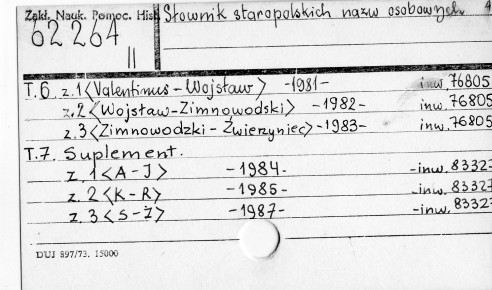 Zakł. Nauk. Pomoc. Hist Słownik staropolskich nazw osobowych. 4
62 264
II
T.6 z.1 <Valentinus - Wojsław> -1981- inw. 76805
z.2 <Wojsław-Zimnowodski> -1982- inw. 76805
z.3 <Zimnowodzki - Źwierzyniec> -1983- inw. 76805
T.7. Suplement.
z.1 <A-J> -1984- -inw. 83327
z.2 <K-R> -1985- -inw. 83327
z.3 <S-Ż> -1987- -inw. 83327
DUJ 897/73. 15000